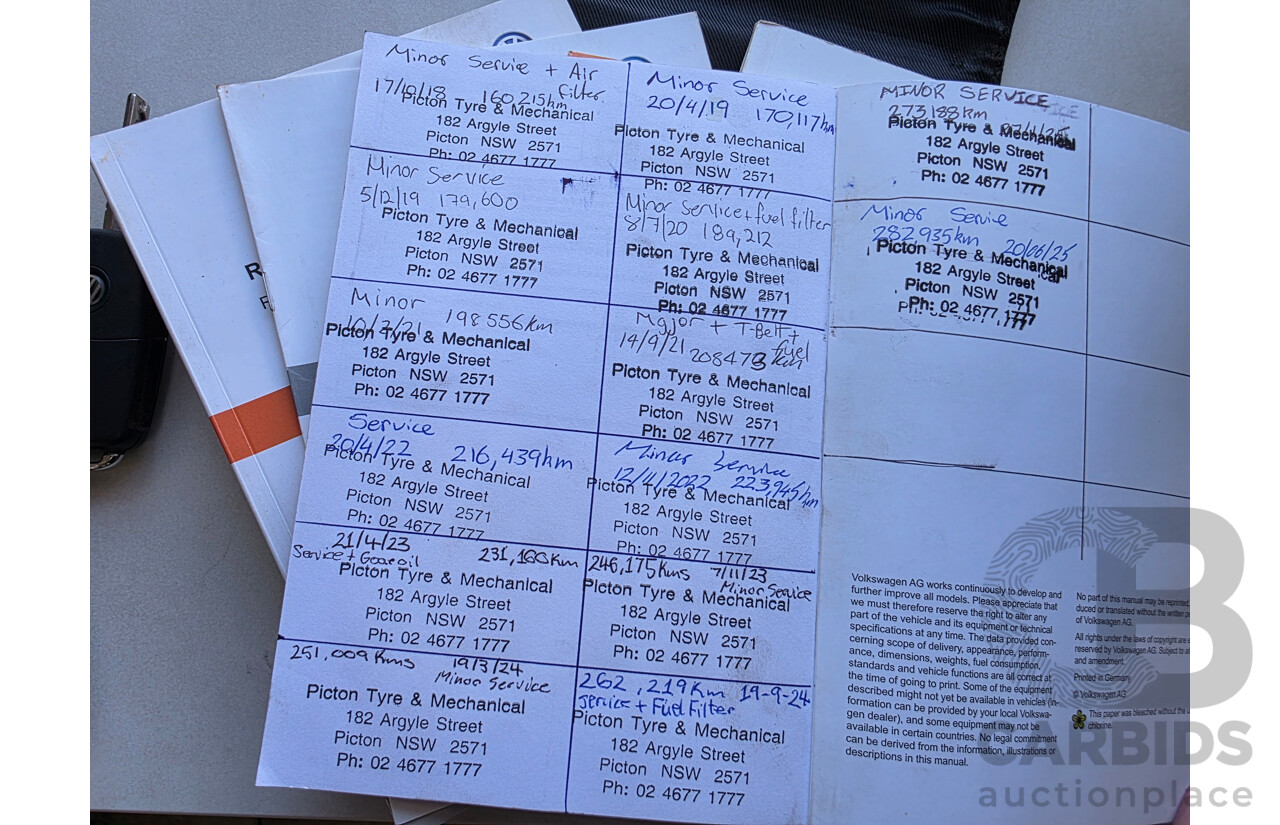 Minor Service + Air
filter
17/10/18 160,215km
Picton Tyre & Mechanical
182 Argyle Street
Picton NSW 2571
Ph: 02 4677 1777
Minor Service
20/4/19 170,117km
Picton Tyre & Mechanical
182 Argyle Street
Picton NSW 2571
Ph: 02 4677 1777
Minor Service
5/12/19 179,600
Picton Tyre & Mechanical
182 Argyle Street
Picton NSW 2571
Ph: 02 4677 1777
Minor Service + fuel filter
8/7/20 189,212
Picton Tyre & Mechanical
182 Argyle Street
Picton NSW 2571
Ph: 02 4677 1777
Minor
198556km
Picton Tyre & Mechanical
182 Argyle Street
Picton NSW 2571
Ph: 02 4677 1777
Major + T-Belt +
fuel
14/9/21 208473km
Picton Tyre & Mechanical
182 Argyle Street
Picton NSW 2571
Ph: 02 4677 1777
Service
20/4/22 216,439km
Picton Tyre & Mechanical
182 Argyle Street
Picton NSW 2571
Ph: 02 4677 1777
Minor Service
12/4/2022 223,945km
Picton Tyre & Mechanical
182 Argyle Street
Picton NSW 2571
Ph: 02 4677 1777
21/4/23
Service + Gear oil 231,160km
Picton Tyre & Mechanical
182 Argyle Street
Picton NSW 2571
Ph: 02 4677 1777
246,175kms 7/11/23
Minor Service
Picton Tyre & Mechanical
182 Argyle Street
Picton NSW 2571
Ph: 02 4677 1777
251,009kms 19/3/24
Minor Service
Picton Tyre & Mechanical
182 Argyle Street
Picton NSW 2571
Ph: 02 4677 1777
262,219km 19-9-24
Service + Fuel Filter
Picton Tyre & Mechanical
182 Argyle Street
Picton NSW 2571
Ph: 02 4677 1777
MINOR SERVICE
273188km
Picton Tyre & Mechanical
182 Argyle Street
Picton NSW 2571
Ph: 02 4677 1777
Minor Service
282,935km 20/06/25
Picton Tyre & Mechanical
182 Argyle Street
Picton NSW 2571
Ph: 02 4677 1777
Volkswagen AG works continuously to develop and
further improve all models. Please appreciate that
we must therefore reserve the right to alter any
part of the vehicle and its equipment or technical
specifications at any time. The data provided con-
cerning scope of delivery, appearance, perform-
ance, dimensions, weights, fuel consumption,
standards and vehicle functions are all correct at
the time of going to print. Some of the equipment
described might not yet be available in vehicles (in-
formation can be provided by your local Volkswa-
gen dealer), and some equipment may not be
available in certain countries. No legal commitment
can be derived from the information, illustrations or
descriptions in this manual.
No part of this manual may be reprinted,
duced or translated without the written
of Volkswagen AG.
All rights under the laws of copyright are
reserved by Volkswagen AG. Subject to
and amendment.
Printed in Germany
© Volkswagen AG
This paper was bleached without the
chlorine.
CARBIDS
auctionplace